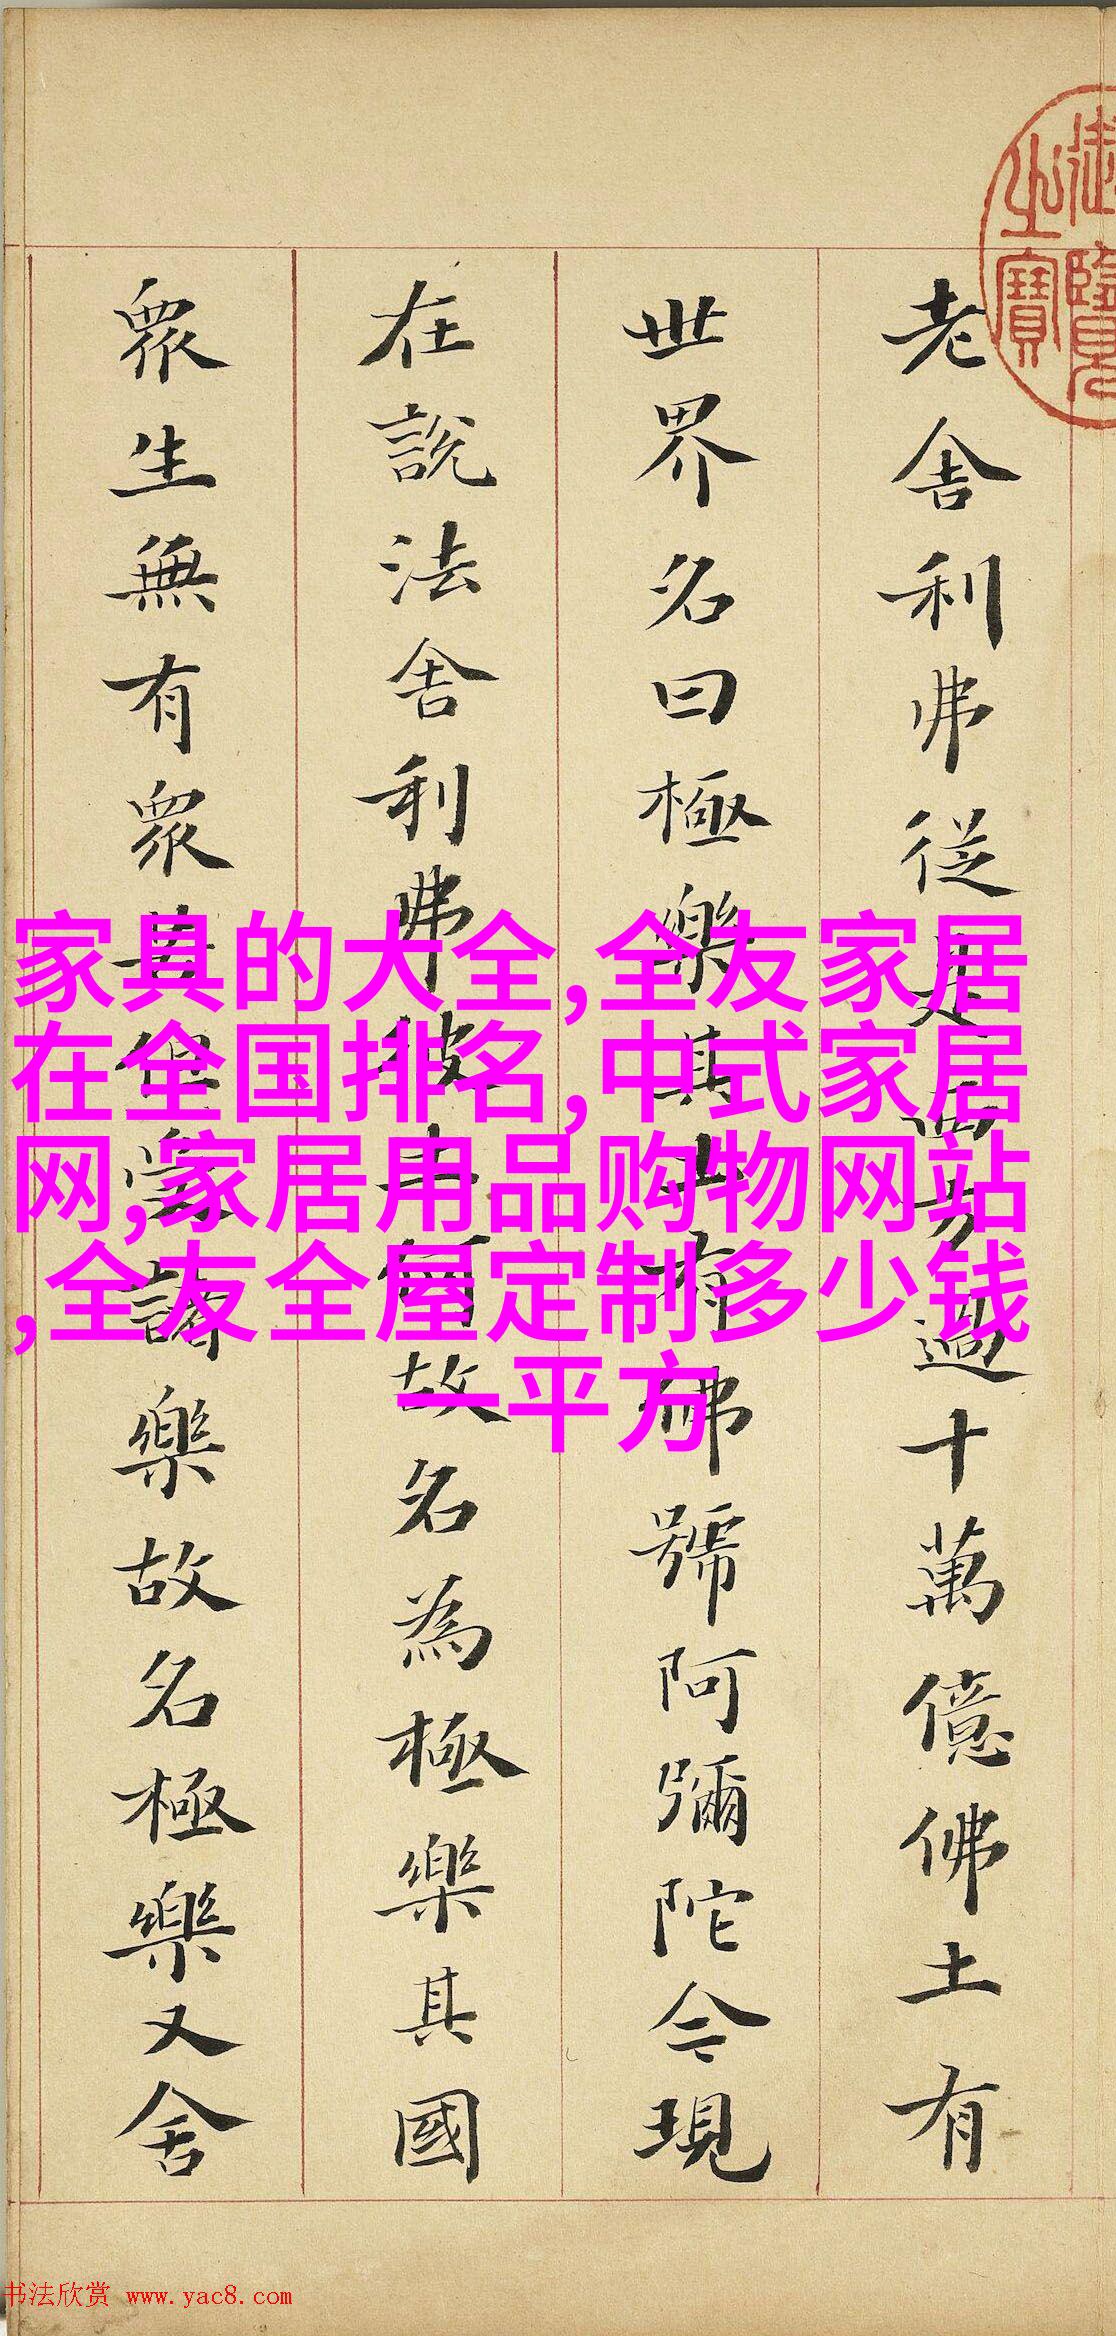 御覽之寶
老舍利弗從是西方過十萬億佛土有
世界名曰極樂其土有佛號阿彌陀今現
在說法舍利弗彼土何故名為極樂其國
眾生無有眾苦但受諸樂故名極樂又舍
家具的大全,全友家居
在全国排名,中式家居
网,家居用品购物网站
,全友全屋定制多少钱
一平方
书法欣赏 www.yac8.com